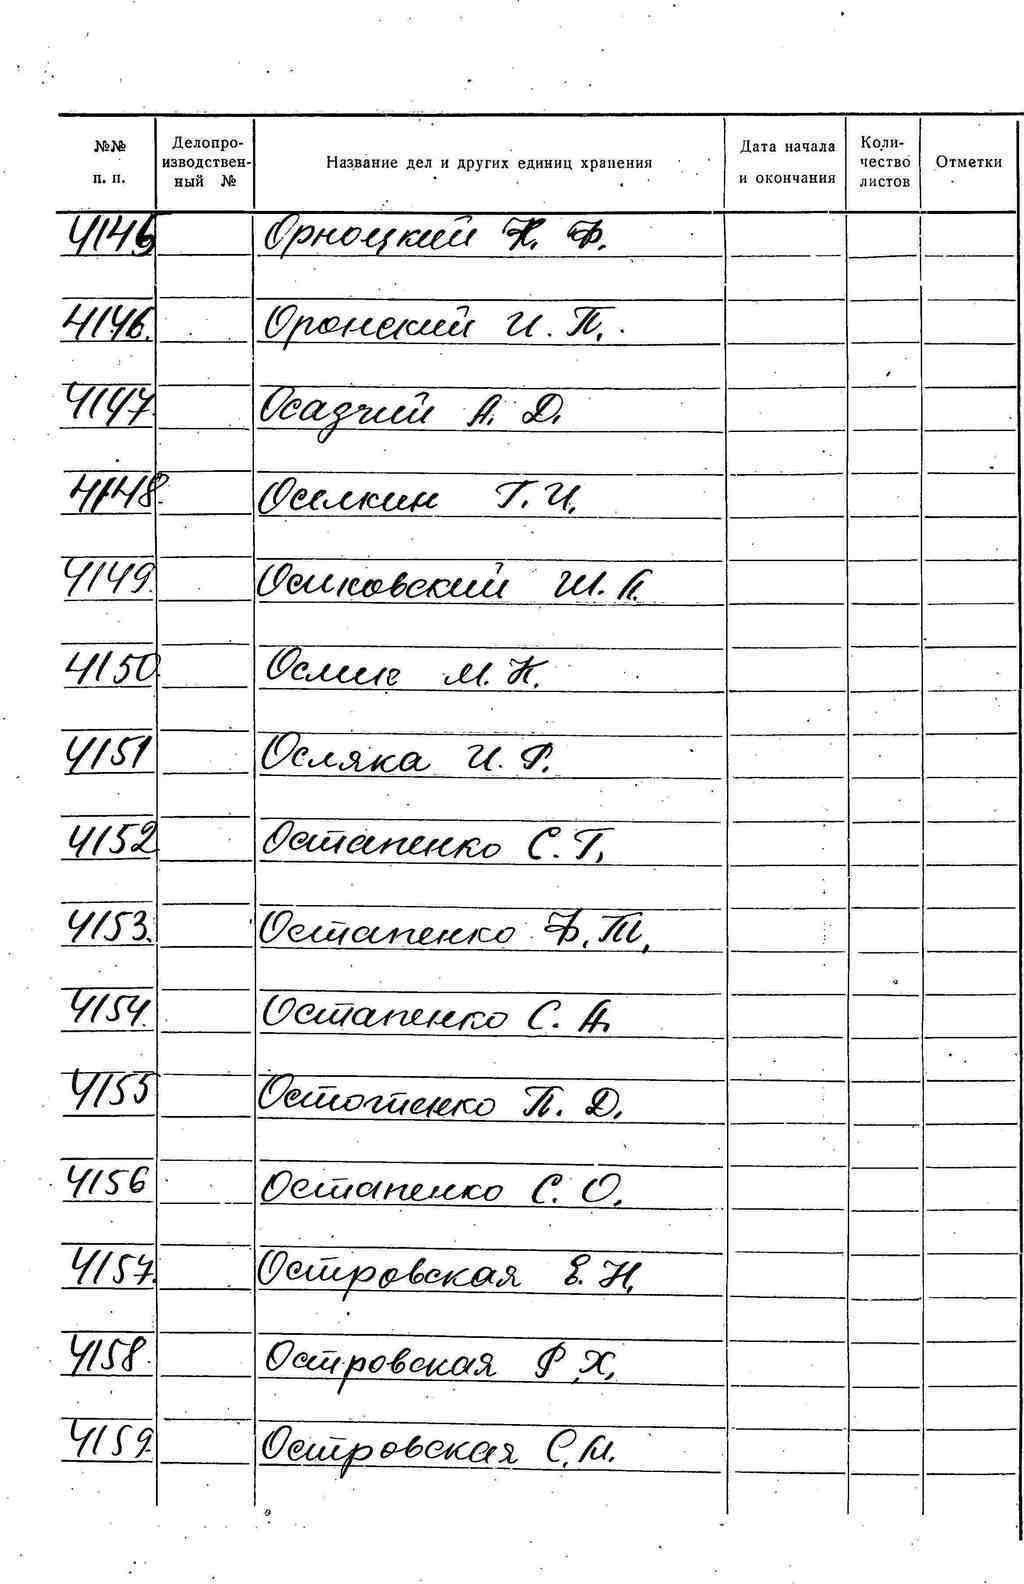 №№ п. п. Делопроизводственный № Название дел и других единиц хранения Дата начала и окончания Количество листов Отметки
4145 Орноцкий К. Ф.
4146. Оронский И. П.
4147. Осадчий А. Д.
4148. Оселкин Г. И.
4149. Осиковский Ш. П.
4150. Осмик М. К.
4151 Осляка И. Ф.
4152 Остапенко С. Г.
4153. Остапенко Ф. Т.
4154. Остапенко С. А.
4155 Остотенко П. Д.
4156 Остапенко С. О.
4157. Островская Е. Н.
4158. Островская Ф. Х.
4159. Островская С. М.